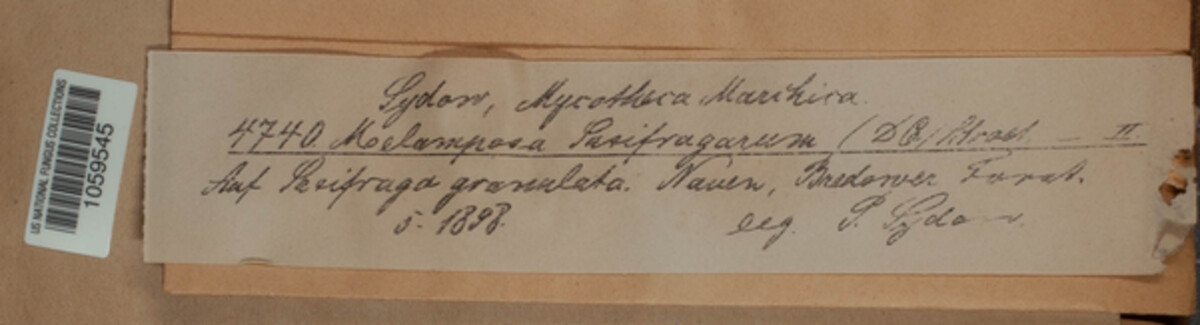 US NATIONAL FUNGUS COLLECTIONS
1059545
Sydow, Mycotheca Marchica.
4740. Melampsora Saxifragarum (DC.) Schroet. — II.
Auf Saxifraga granulata. Nauen, Bredower Forst.
5. 1898. leg. P. Sydow.